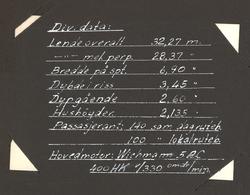 Div. data:
Lengde overall 32,27 m.
—"— mel. perp. 28,37 "
Bredde på spt. 6,90 "
Dybde i riss 3,45 "
Dypgående 2,60 "
Hushöyder 2,135 "
Passasjerant: 140 som dagruteb.
100 " lokalruteb.
Hovedmotor: Wichmann 5AC
400 HK v/330 omdr/min.